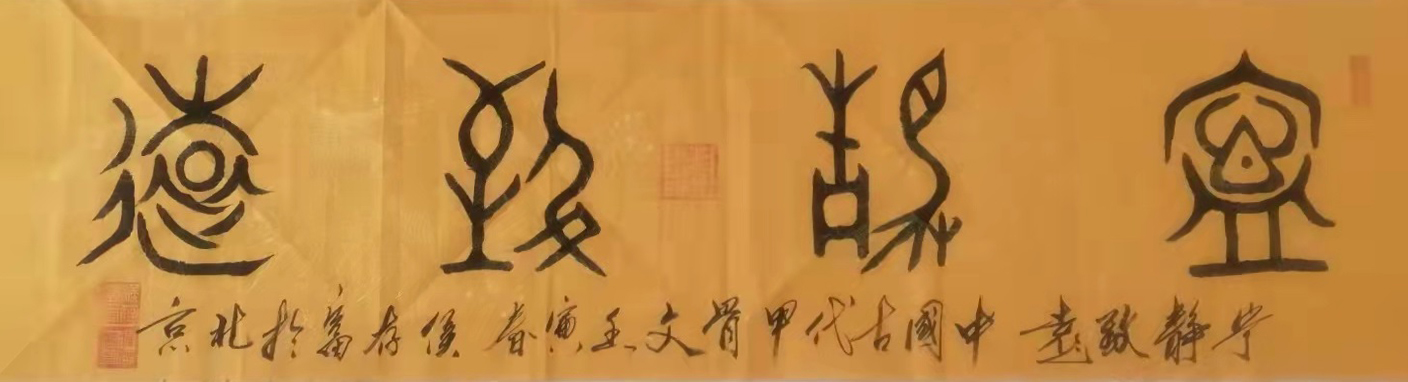 寧靜致遠
宁静致遠 中國古代甲骨文 壬寅春 侯存富於北京